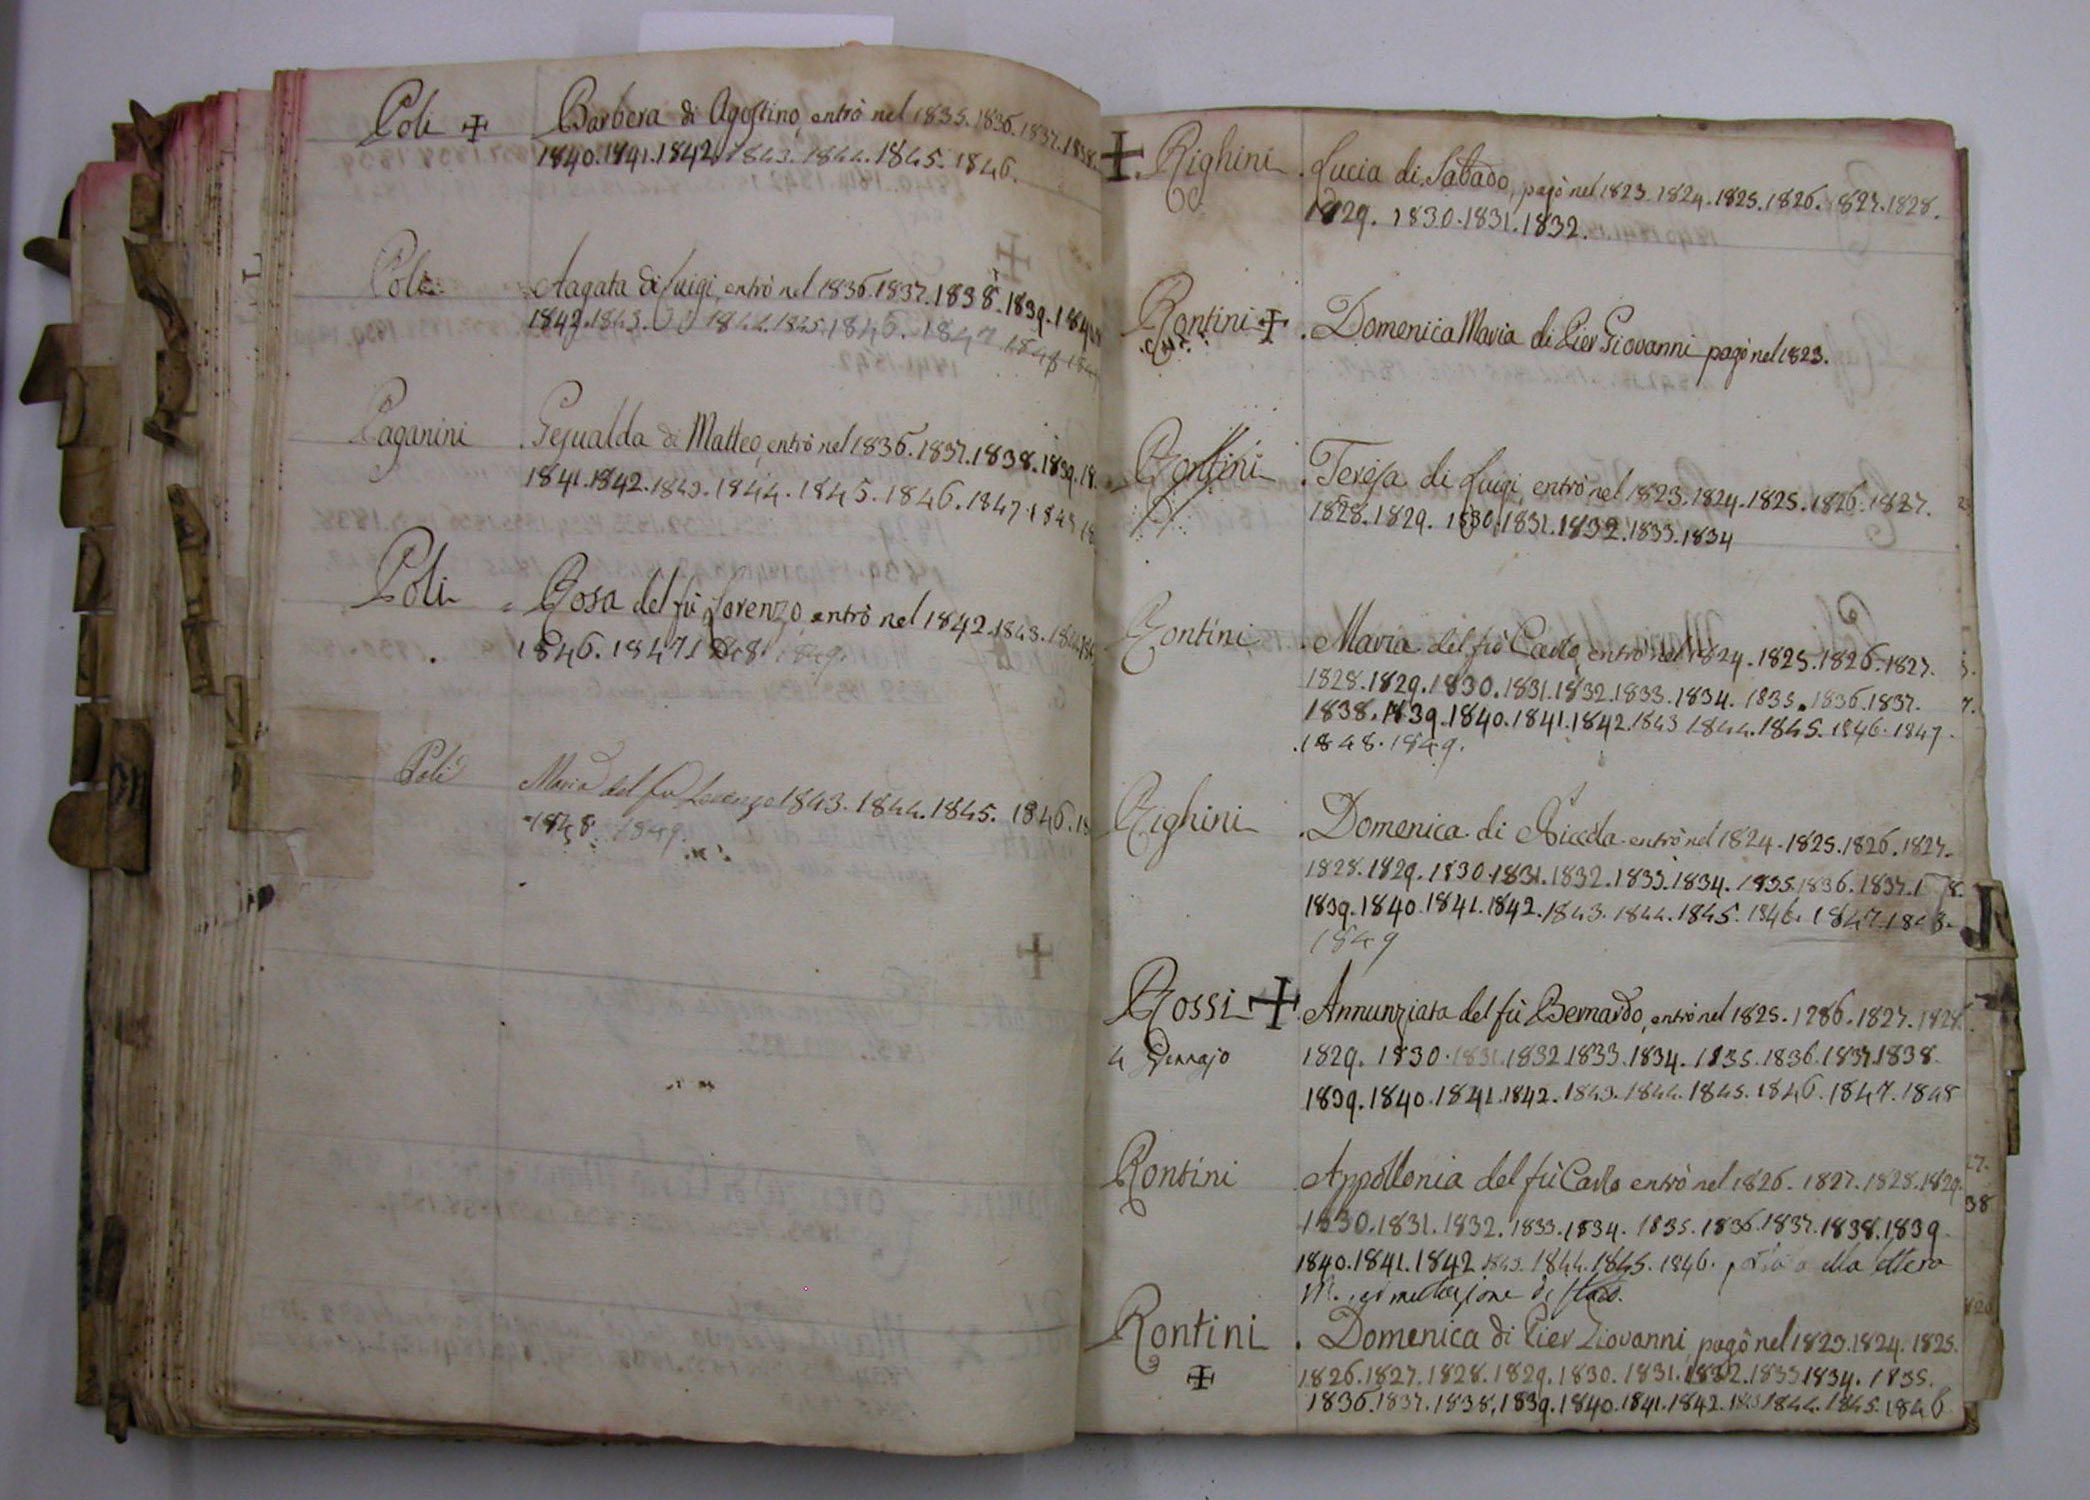 Poli ✠ Barbera di Agostino, entrò nel 1835. 1836. 1837. 1838.
1840. 1841. 1842. 1843. 1844. 1845. 1846.
Poli Aagata di Luigi, entrò nel 1836. 1837. 1838. 1839. 1840
1842. 1843. 1844. 1845. 1846. 1847 1848
Paganini . Gesualda di Matteo, entrò nel 1836. 1837. 1838. 1839. 18
1841. 1842. 1843. 1844. 1845. 1846. 1847. 1848
Poli Rosa del fù Lorenzo, entrò nel 1842. 1843. 1844
1846. 1847. 1848. 1849.
Poli Maria del fu Lorenzo 1843. 1844. 1845. 1846.
1848. 1849.
✠ Righini . Lucia di Sabado, pagò nel 1823. 1824. 1825. 1826. 1827. 1828.
1829. 1830. 1831. 1832.
Rontini ✠ . Domenica Maria di Pier Giovanni pagò nel 1823.
Rontini . Teresa di Luigi, entrò nel 1823. 1824. 1825. 1826. 1827.
1828. 1829. 1830. 1831. 1832. 1833. 1834
Rontini . Maria del fù Carlo, entrò nel 1824. 1825. 1826. 1827.
1828. 1829. 1830. 1831. 1832. 1833. 1834. 1835. 1836. 1837.
1838. 1839. 1840. 1841. 1842. 1843 1844. 1845. 1846. 1847.
. 1848. 1849.
Righini . Domenica di Niccola entrò nel 1824. 1825. 1826. 1827.
1828. 1829. 1830. 1831. 1832. 1833. 1834. 1835. 1836. 1837.
1839. 1840. 1841. 1842. 1843. 1844. 1845. 1846. 1847. 1848.
1849
Rossi ✠ . Annunziata del fù Bernardo, entrò nel 1825. 1286. 1827. 1828.
4 Gennajo 1829. 1830. 1831. 1832. 1833. 1834. 1835. 1836. 1837. 1838.
1839. 1840. 1841. 1842. 1843. 1844. 1845. 1846. 1847. 1848
Rontini . Appollonia del fù Carlo entrò nel 1826. 1827. 1828. 1829.
1830. 1831. 1832. 1833. 1834. 1835. 1836. 1837. 1838. 1839.
1840. 1841. 1842 1843. 1844. 1845. 1846. alla lettera
M. di Stato.
Rontini . Domenica di Pier Giovanni, pagò nel 1823. 1824. 1825.
✠ 1826. 1827. 1828. 1829. 1830. 1831. 1832. 1833 1834. 1835.
1836. 1837. 1838. 1839. 1840. 1841. 1842. 1843 1844. 1845. 1846